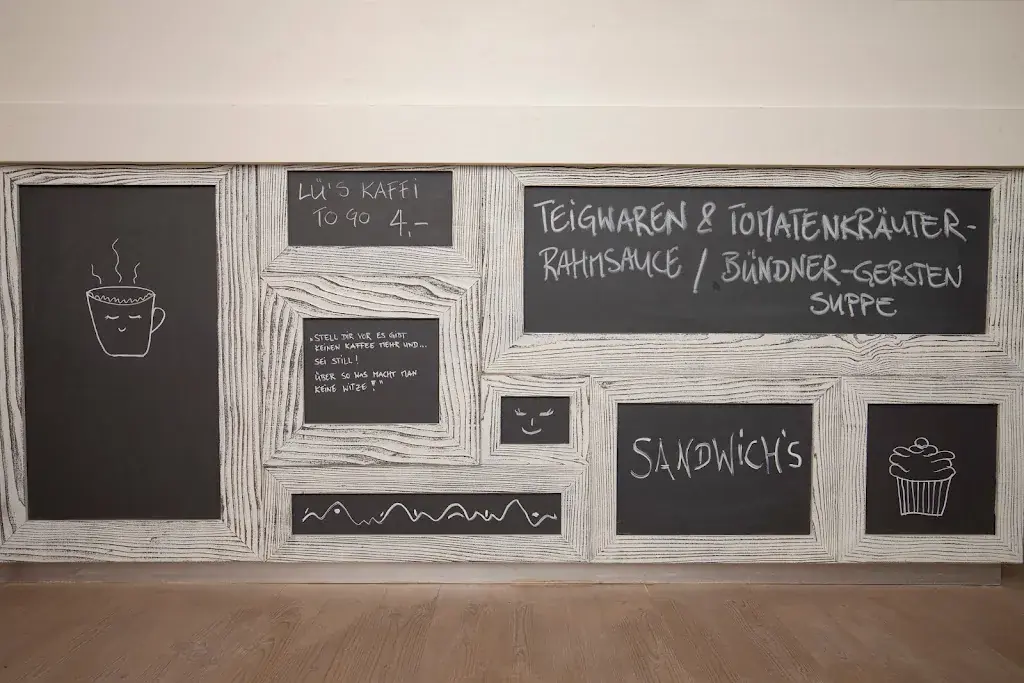 LÜ'S KAFFI
TO GO 4,–
„STELL DIR VOR ES GIBT
KEINEN KAFFEE MEHR UND...
SEI STILL!
ÜBER SO WAS MACHT MAN
KEINE WITZE!"
TEIGWAREN & TOMATENKRÄUTER-
RAHMSAUCE / BÜNDNER-GERSTEN
SUPPE
SANDWiCH'S